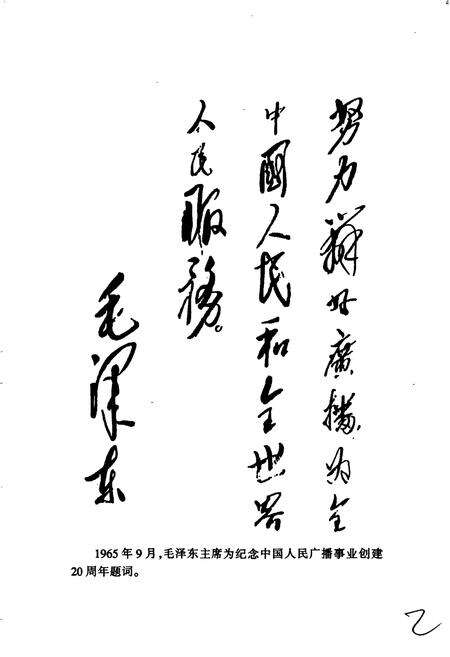 努力辦好廣播为全
中國人民和全世界
人民服務。
毛澤东
1965年9月,毛泽东主席为纪念中国人民广播事业创建
20周年题词。